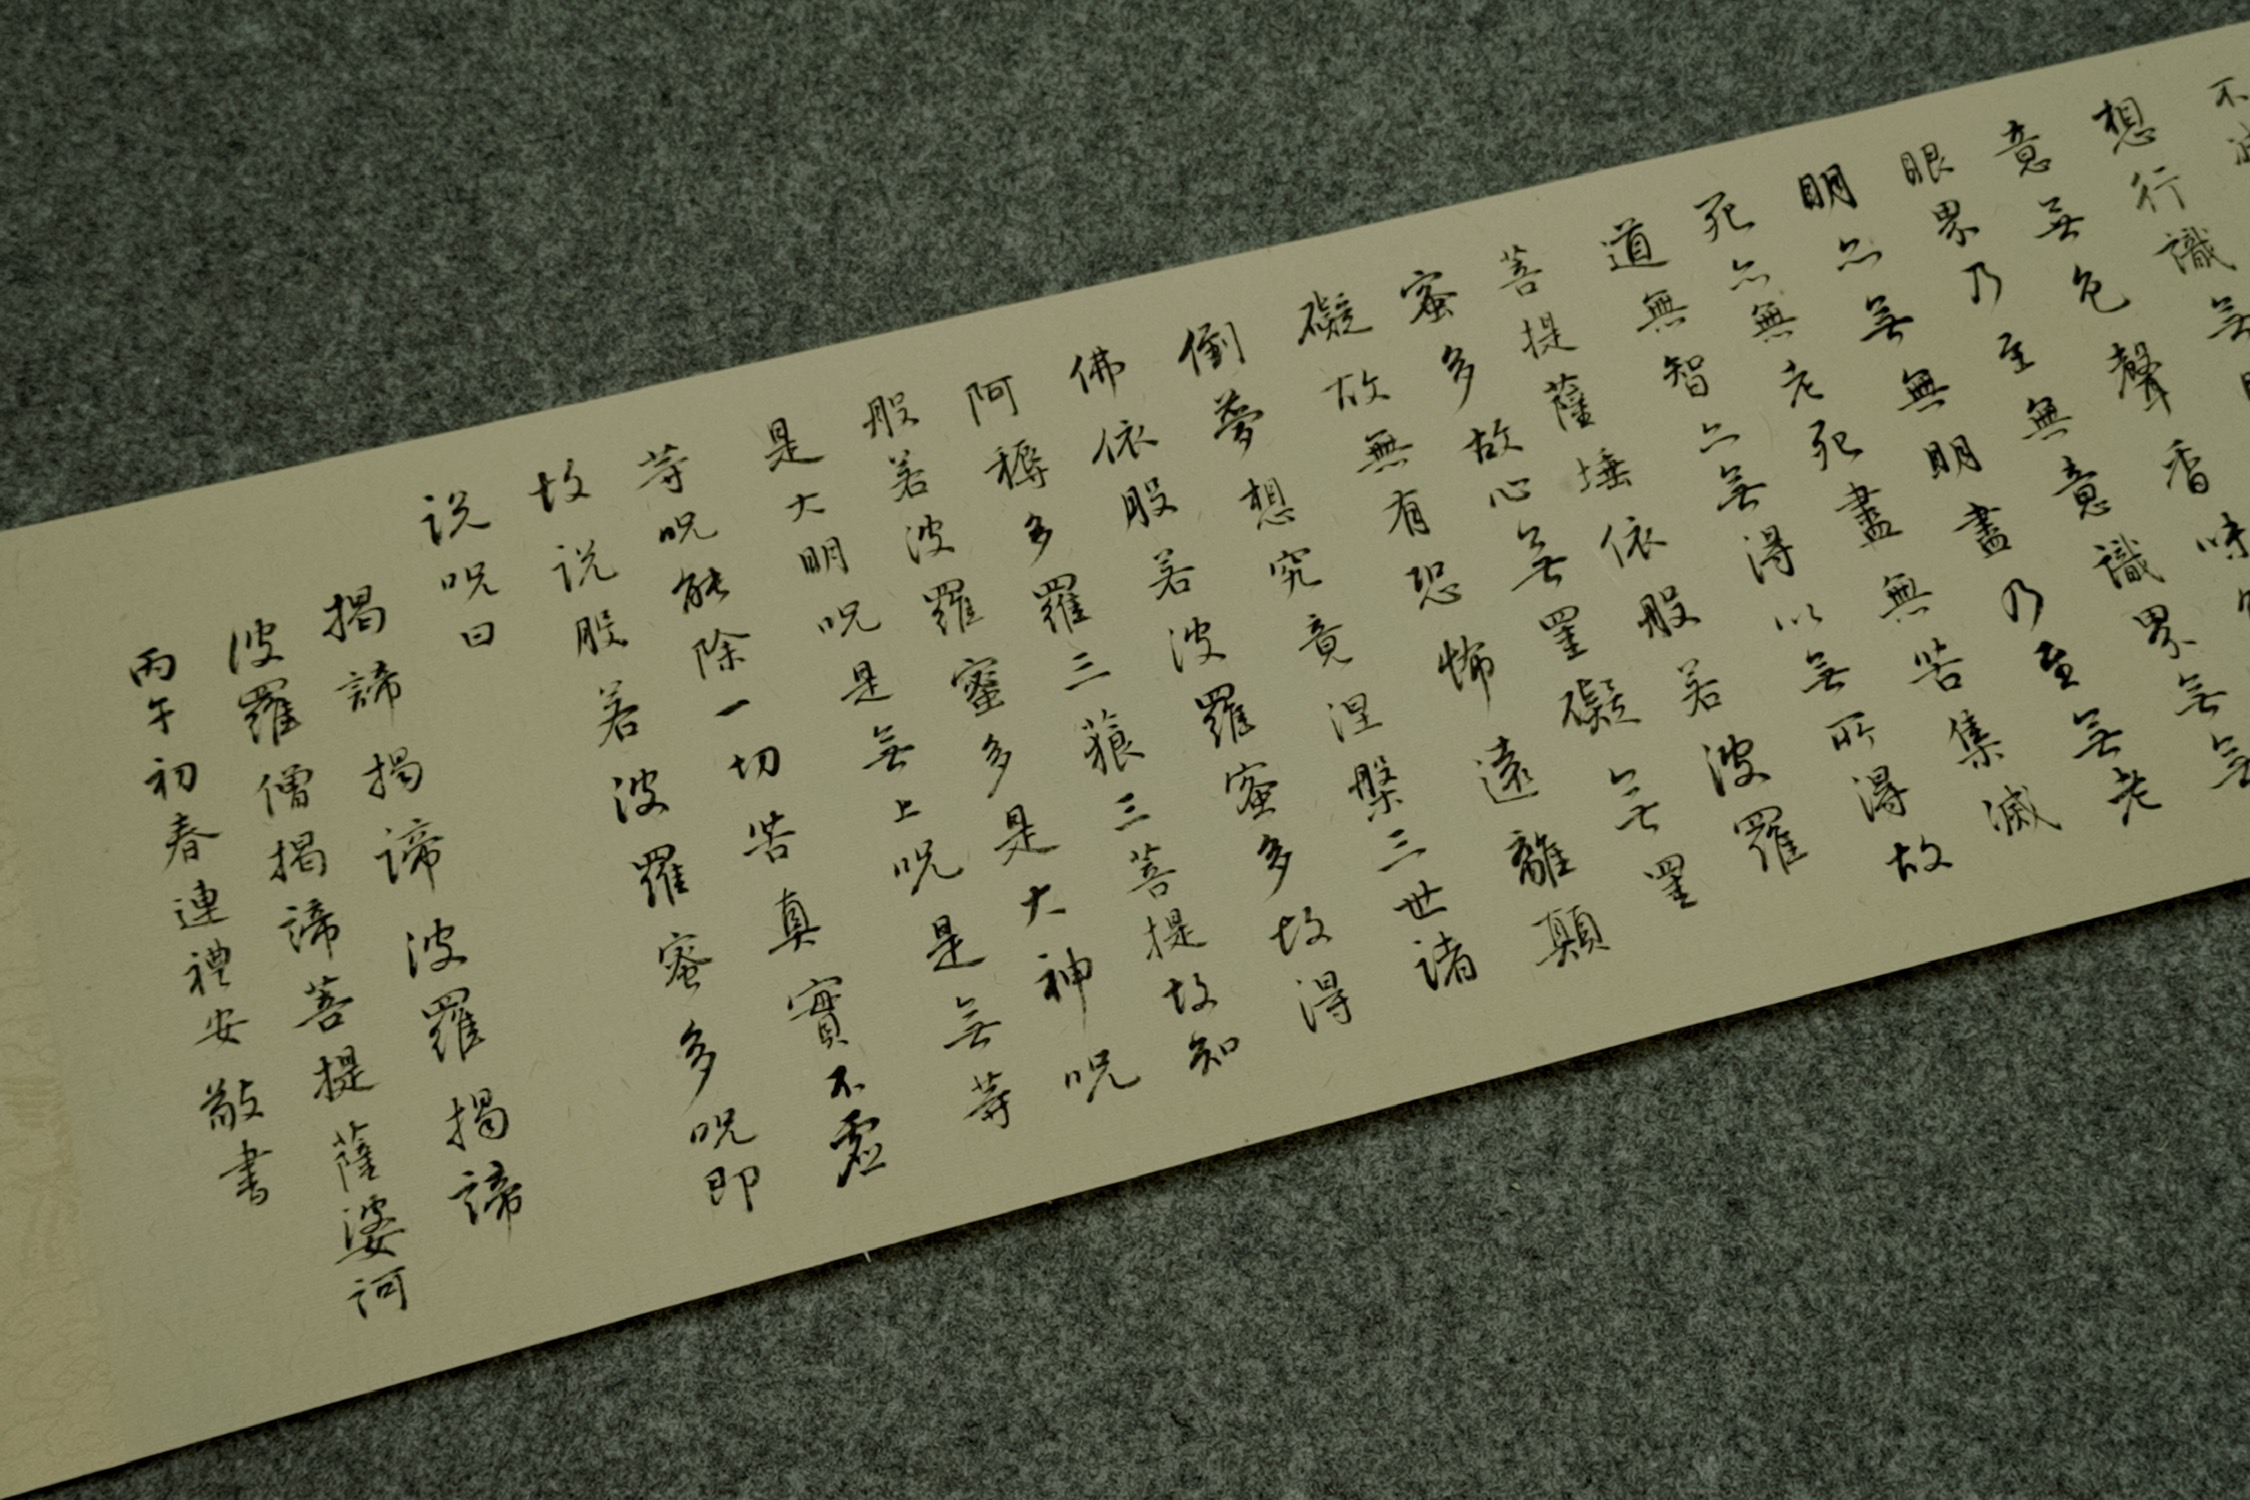 不減
想行識無
意無色聲香味
眼界乃至無意識界無無
明亦無無明盡乃至無老
死亦無老死盡無苦集滅
道無智亦無得以無所得故
菩提薩埵依般若波羅
蜜多故心無罣礙無罣
礙故無有恐怖遠離顛
倒夢想究竟涅槃三世諸
佛依般若波羅蜜多故得
阿耨多羅三藐三菩提故知
般若波羅蜜多是大神呪
是大明呪是無上呪是無等
等呪能除一切苦真實不虛
故說般若波羅蜜多呪即
說呪曰
揭諦揭諦波羅揭諦
波羅僧揭諦菩提薩婆訶
丙午初春連禮安敬書